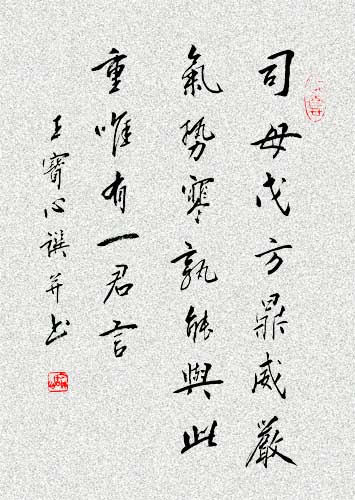 司母戊方鼎威嚴
氣勢寥孰能與此
重唯有一君言
王寶心譔并书